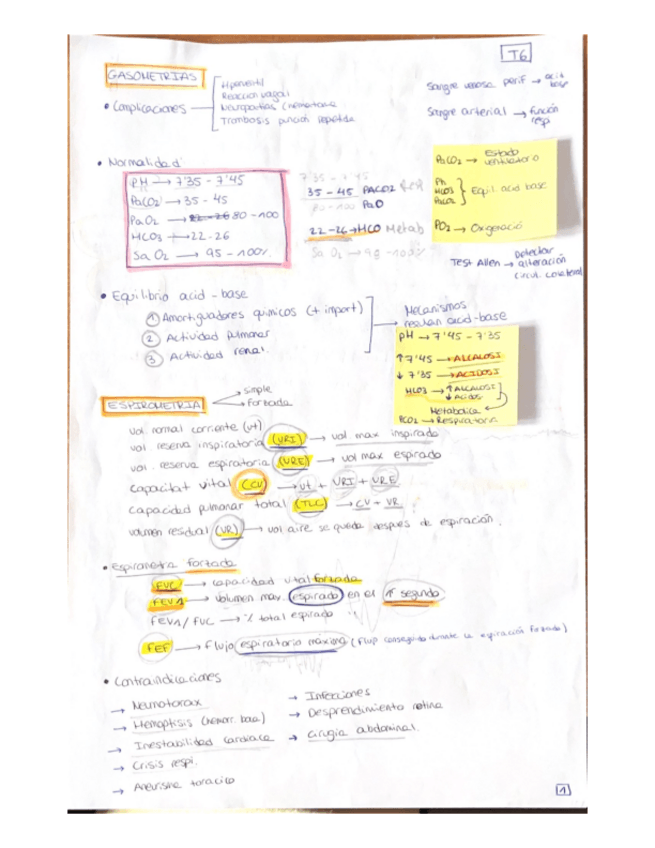 T6
GASOMETRIAS
• Complicaciones
Hiperventil
Reaccion vagal
Neuropatias (hematoma
Trombosis puncion repetida
Sangre venosa perif → acid base
Sangre arterial → función resp
• Normalidad:
PH → 7'35 - 7'45
PaCO2 → 35 - 45
PaO2 → 80 - 100
HCO3 → 22 - 26
Sa O2 → 95 - 100%
7'35 - 7'45
35 - 45 PACO2
80 - 100 PaO
22 - 26 → HCO Metab
Sa O2 → 98 - 100%
PaCO2 → Estado ventilatorio
Ph
HCO3
PaCO2
Equil. acid base
PO2 → Oxigeració
Test Allen → Detectar alteración circul. colateral
• Equilibrio acid - base
1 Amortiguadores quimicos (+ import)
2 Actividad pulmonar
3 Actividad renal.
Mecanismos regulan acid-base
PH → 7'45 - 7'35
↑ 7'45 → ALCALOSI
↓ 7'35 → ACIDOSI
HCO3 → ↑ ALCALOSI
↓ ACIDOS
Metabolica
PCO2 → Respiratoria
ESPIROMETRIA
→ simple
→ Forzada
vol normal corriente (vt)
vol reserva inspiratoria (VRI) → vol max inspirado
vol. reserva espiratoria (VRE) → vol max espirado
capacitat vital (CV) → vt + VRI + VRE
capacidad pulmonar total (TLC) → CV + VR
volumen residual (VR) → vol aire se queda despues de espiración.
• Espirometria forzada
FVC → capacidad vital forzada
FEV1 → volumen max. espirado en el 1r segundo
FEV1 / FVC → % total espirado
FEF → flujo espiratorio máximo (flujo conseguido durante la espiración forzada)
• Contraindicaciones
→ Neumotorax
→ Hemoptisis (hemorr. boca)
→ Inestabilidad cardiaca
→ Crisis respi.
→ Aneurisma toracico
→ Infecciones
→ Desprendimiento retina
→ cirugia abdominal.
1